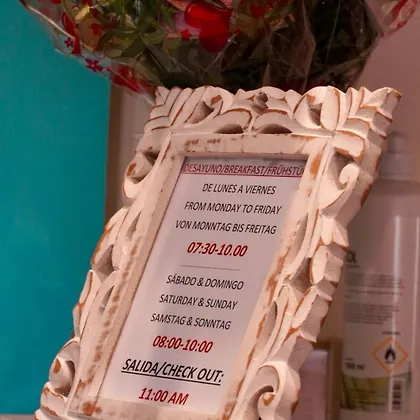 DESAYUNO/BREAKFAST/FRÜHSTÜ
DE LUNES A VIERNES
FROM MONDAY TO FRIDAY
VON MONNTAG BIS FREITAG
07:30-10.00
SÁBADO & DOMINGO
SATURDAY & SUNDAY
SAMSTAG & SONNTAG
08:00-10:00
SALIDA/CHECK OUT:
11:00 AM